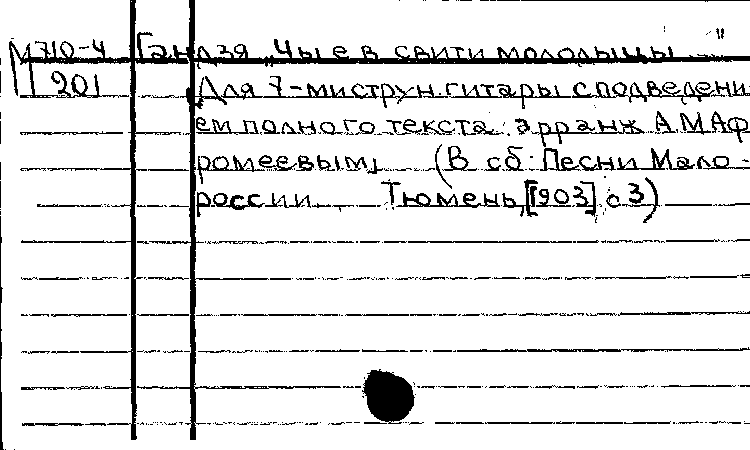 М710-4 Гандзя „Чы е в свити молодыцы"
201 Для 7-миструн.гитары с подведени
ем полного текста аранж А М Аф
ромеевым, (В сб: Песни Мало-
россии Тюмень,[903] с 3)